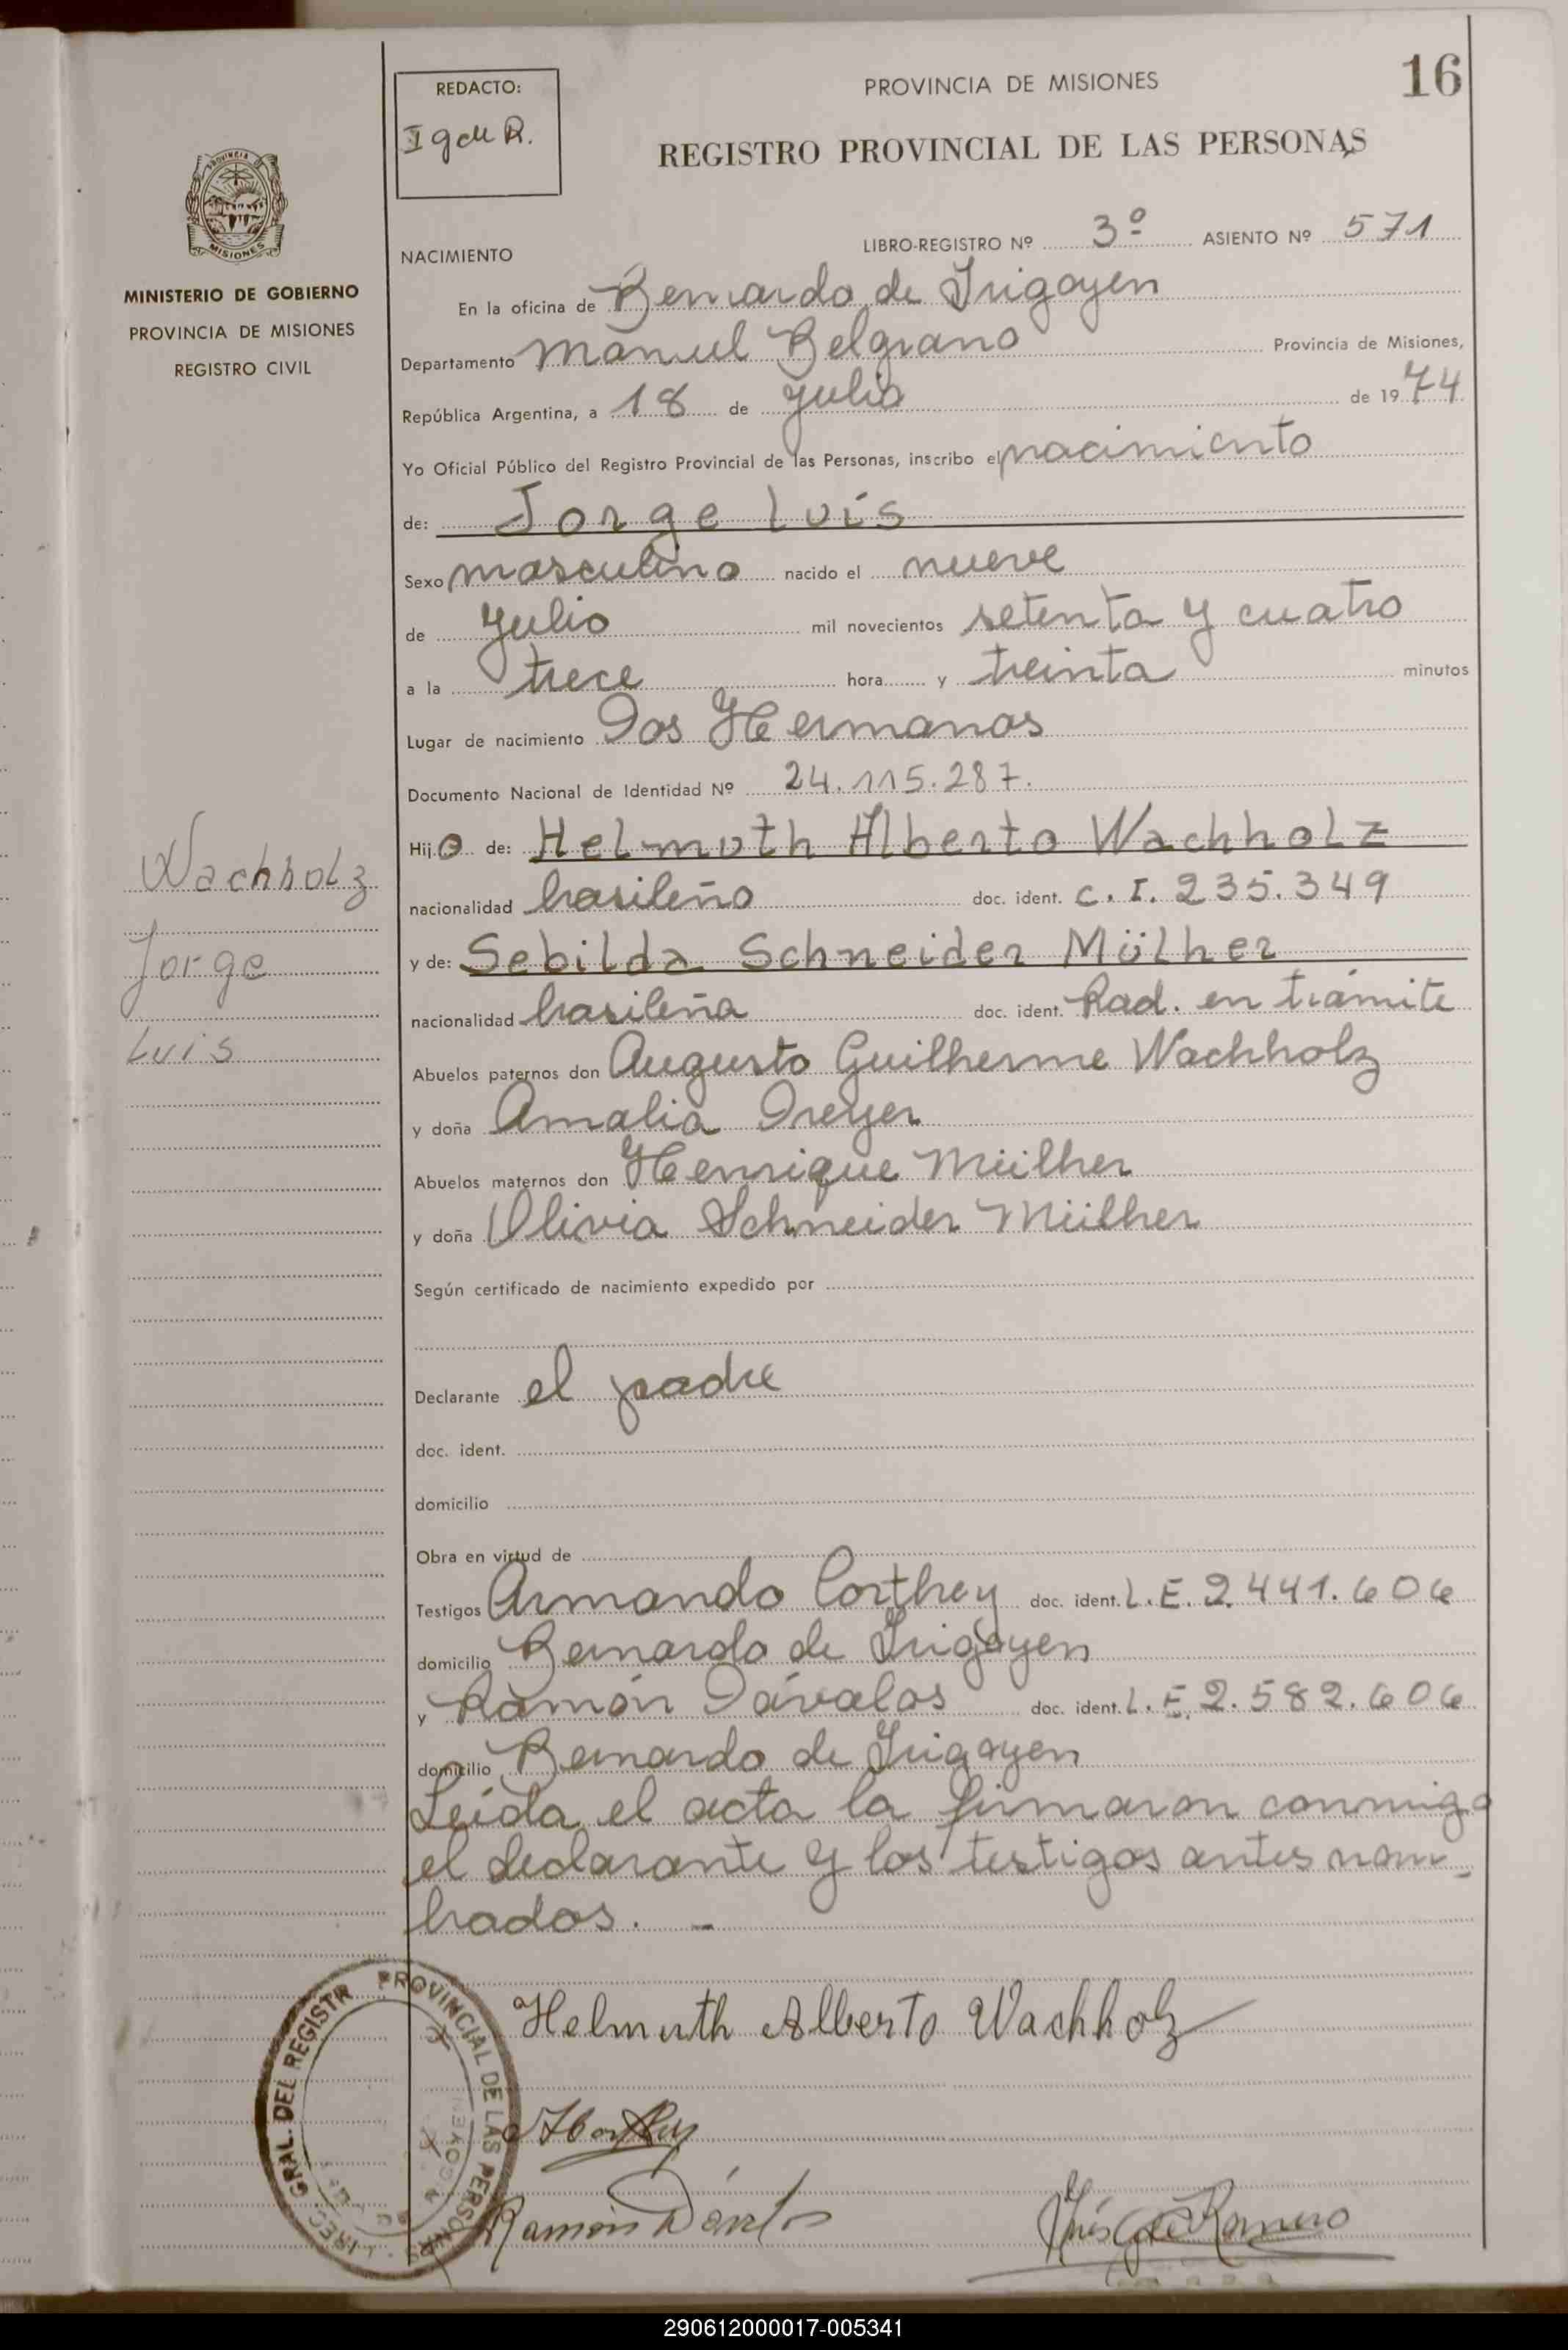 16
REDACTO:
I g de R.
PROVINCIA DE MISIONES
REGISTRO PROVINCIAL DE LAS PERSONAS
MISIONES
MINISTERIO DE GOBIERNO
PROVINCIA DE MISIONES
REGISTRO CIVIL
NACIMIENTO
LIBRO-REGISTRO Nº 3º ASIENTO Nº 571
En la oficina de Bernardo de Irigoyen
Departamento Manuel Belgrano Provincia de Misiones,
República Argentina, a 18 de Julio de 1974
Yo Oficial Público del Registro Provincial de las Personas, inscribo el nacimiento
de: Jorge Luis
Sexo masculino nacido el nueve
de Julio mil novecientos setenta y cuatro
a la trece hora y treinta minutos
Lugar de nacimiento Dos Hermanos
Documento Nacional de Identidad Nº 24.115.287.
Hijo de: Helmuth Alberto Wachholz
nacionalidad brasileño doc. ident. C.I. 235.349
y de: Sebilda Schneider Mülher
nacionalidad brasileña doc. ident. Rad. en trámite
Abuelos paternos don Augusto Guilherme Wachholz
y doña Amalia Dreyer
Abuelos maternos don Henrique Müilher
y doña Olivia Schneider Müilher
Según certificado de nacimiento expedido por
Declarante el padre
doc. ident.
domicilio
Obra en virtud de
Testigos Armando Corthey doc. ident. L.E. 2.441.606
domicilio Bernardo de Irigoyen
y Ramón Dávalos doc. ident. L.E. 2.582.606
domicilio Bernardo de Irigoyen
Leída el acta la firmaron conmigo
el declarante y los testigos antes nom-
brados. -
Wachholz
Jorge
Luis
Helmuth Alberto Wachholz
Ramón Dávalos
Inés G de Romero
DIREC. GRAL. DEL REGISTR PROVINCIAL DE LAS PERSONAS
290612000017-005341